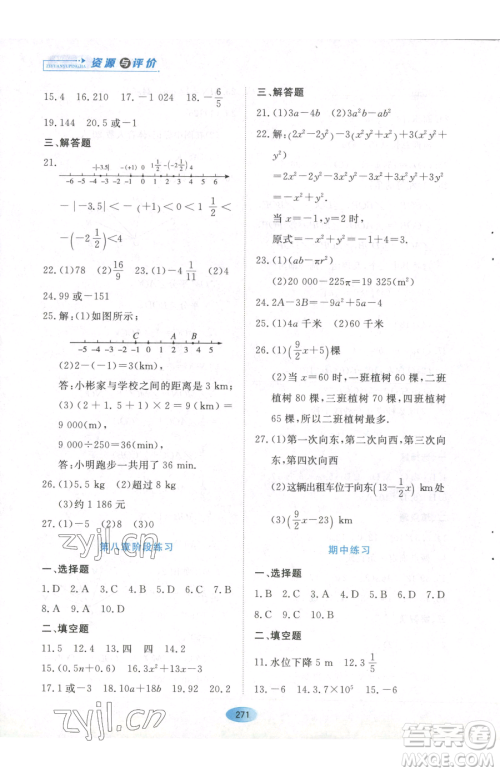 资源与评价
15.4 16.210 17.-1 024 18.-6/5
19.144 20.5 或-1
三、解答题
21.
-|-3.5| -(+1) 0 1 1/2 -(-2 1/2) 4
-6 -5 -4 -3 -2 -1 0 1 2 3 4 5 6
-|-3.5|<-(+1)<0<1 1/2<
-(-2 1/2)<4
22.(1)78 (2)16/9 23.(1)-4 1/11 (2)4
24.99 或-151
25.解:(1)如图所示:
C A B
-5 -4 -3 -2 -1 0 1 2 3 4 5
(2)2-(-1)=3(km),
答:小彬家与学校之间的距离是 3 km.
(3)(2+1.5+1)×2=9(km)=
9 000(m),
9 000÷250=36(min).
答:小明跑步一共用了 36 min.
26.(1)5.5 kg (2)超过 8 kg
(3)约 1 186 元
27.(1)-5 (2)1 或 5
第八章阶段练习
一、选择题
1.D 2.A 3.C 4.B 5.D 6.C 7.D
8.A 9.A 10.C
二、填空题
11.5 12.4 13.四 四 14.2
15.(0.5n+0.6) 16.x²+3x+6
17.1 或-3 18.19 19.92 20.2
三、解答题
21.(1)3a-4b (2)3a²-b²
22.解:(2x²-2y²)-3(x²y²+x)+3(x²y²+
y)
=2x²-2y²-3x²y²-3x+3x²y²+3y
=2x²-2y²-3x+3y.
当 x=-1,y=2 时,
原式=-6+3+6=3.
23.(1)(ab-πr²)m²
(2)20 000-225π=19 325(m²)
24.2A-3B=-4a²-a-6
25.(1)4a 千米 (2)1.5a 千米
26.(1)(9/2x+5)棵
(2)当 x=60 时,一班植树 60 棵,二班
植树 80 棵,三班植树 70 棵,四班植树
65 棵,所以二班植树最多.
27.(1)第一次向东,第二次向西,第三次
向东,第四次向西
(2)这辆出租车位于向东(13-1/2x)km
(3)(9/2x-23) km
期中练习
一、选择题
1.D 2.B 3.C 4.D 5.C 6.B 7.A
8.D 9.C 10.A
二、填空题
11.水位下降 5 m 12.3 1/5
13.-6 14.7×10⁵ 15.4 16.-6
271
zyjl.cn
答案圈
MXQE.COM